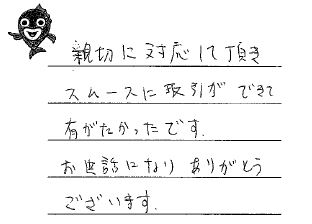 親切に対応して頂き
スムースに取引ができて
有がたかったです.
お世話になり ありがとう
ございます.